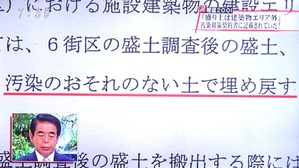 「盛り土は建築物エリア外」
汚染対策契約書に記載されていた!
)における施設建築物の建設エリ
ては、6街区の盛土調査後の盛土、
汚染のおそれのない土で埋め戻す
調査後の盛土を搬出する際には